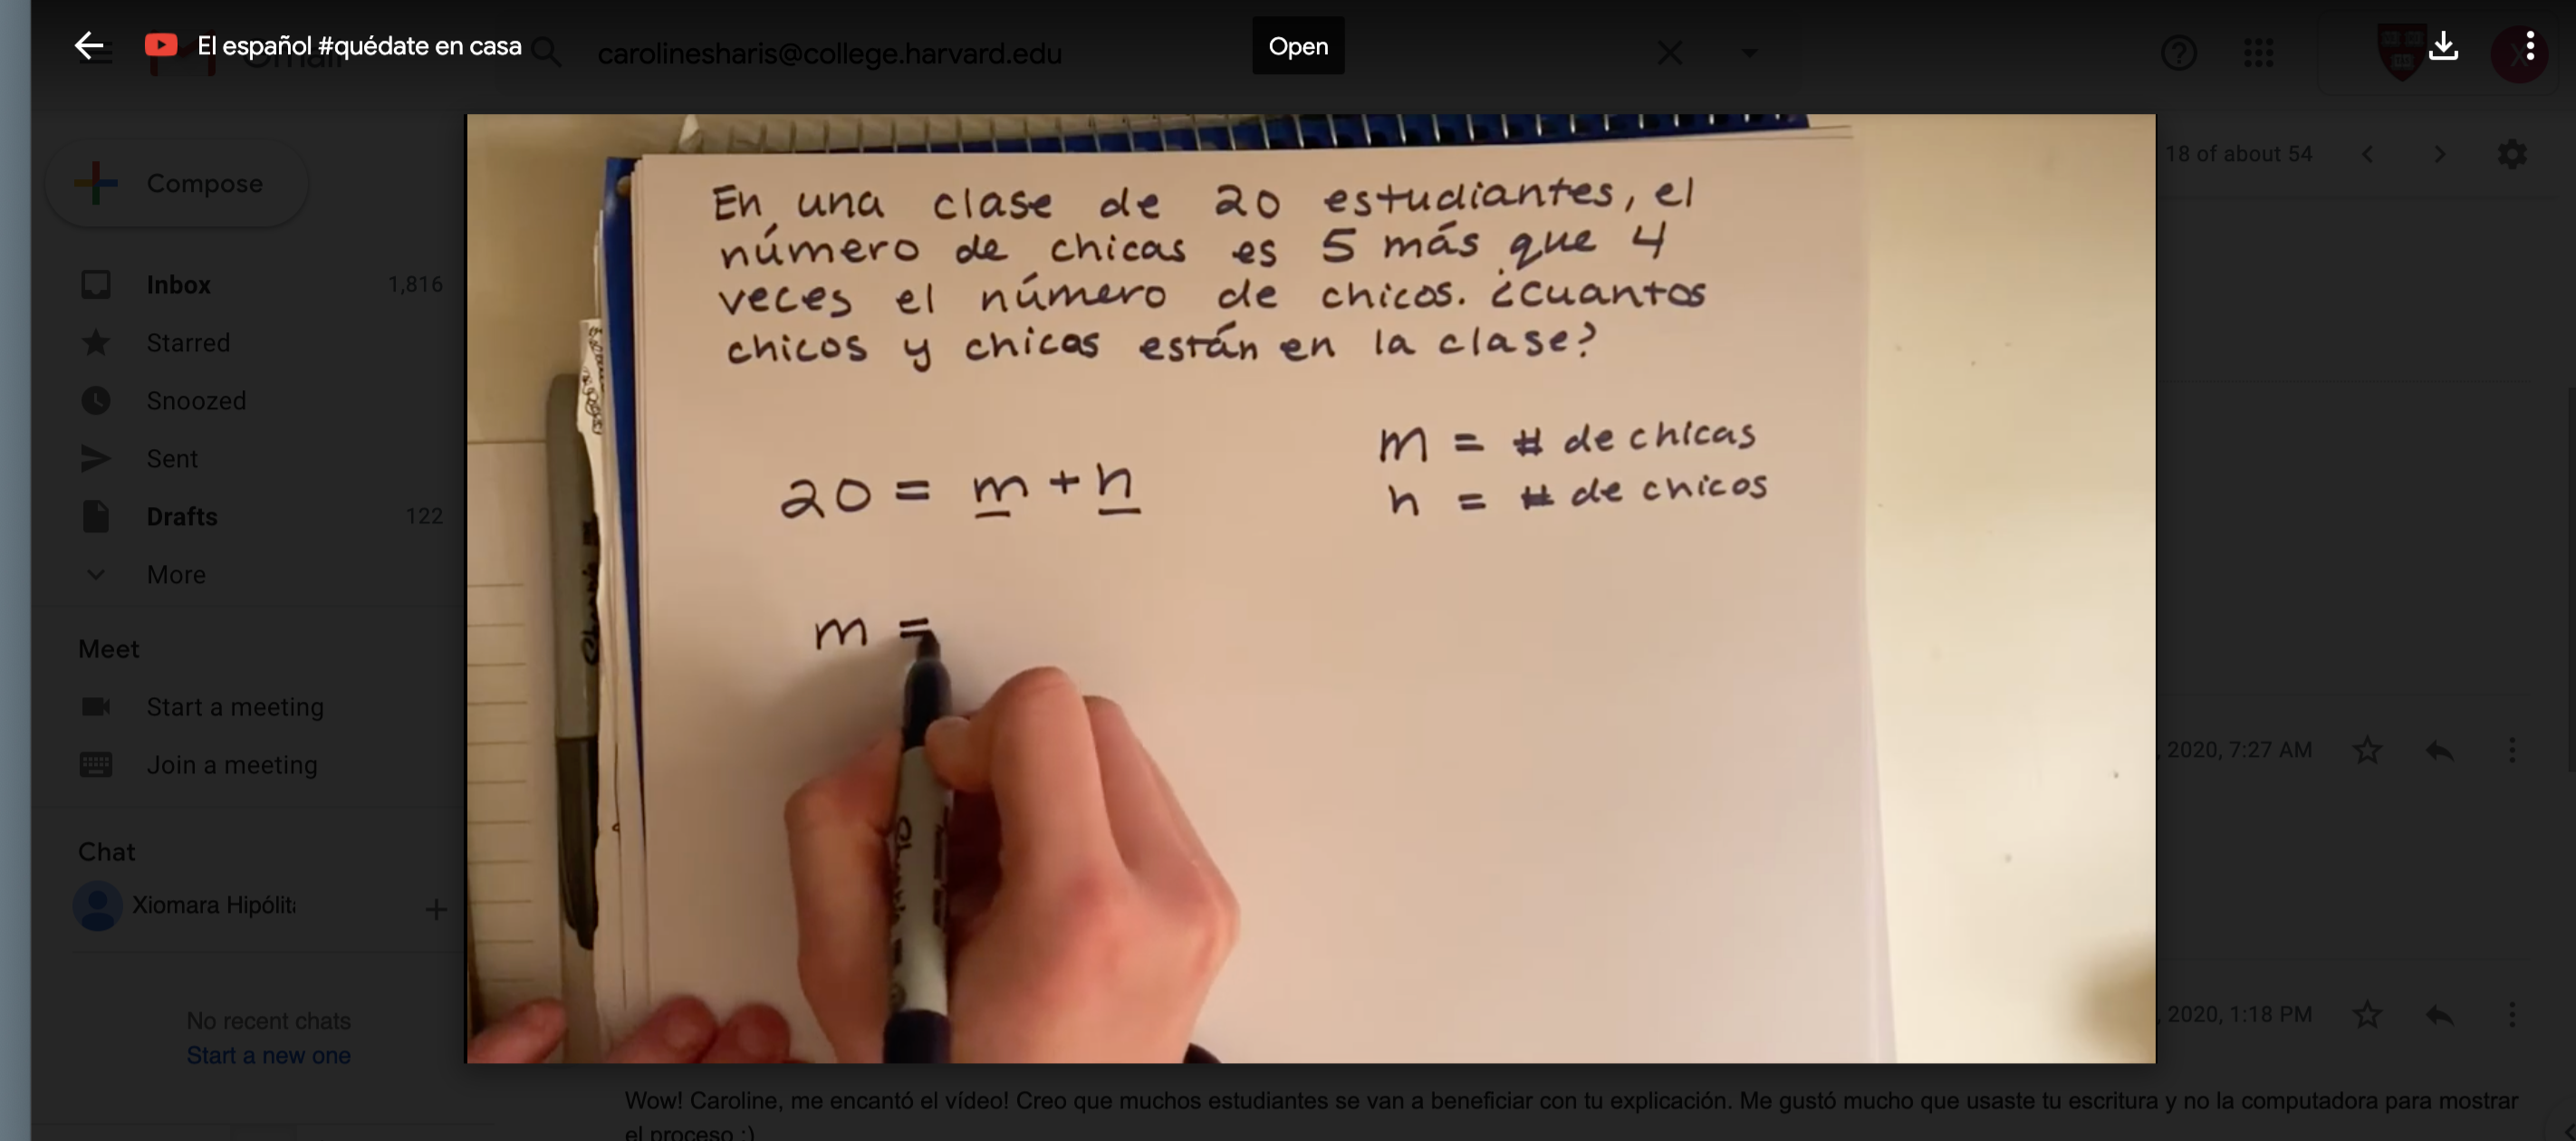 El español #quédate en casa
carolinesharis@college.harvard.edu
Open
Compose
18 of about 54
Inbox 1,816
Starred
Snoozed
Sent
Drafts 122
More
Meet
Start a meeting
Join a meeting
Chat
Xiomara Hipólit
No recent chats
Start a new one
En una clase de 20 estudiantes, el
número de chicas es 5 más que 4
veces el número de chicos. ¿cuantos
chicos y chicas están en la clase?
m = # de chicas
n = # de chicos
20 = m + n
m =
, 2020, 7:27 AM
, 2020, 1:18 PM
Wow! Caroline, me encantó el vídeo! Creo que muchos estudiantes se van a beneficiar con tu explicación. Me gustó mucho que usaste tu escritura y no la computadora para mostrar
el proceso :)